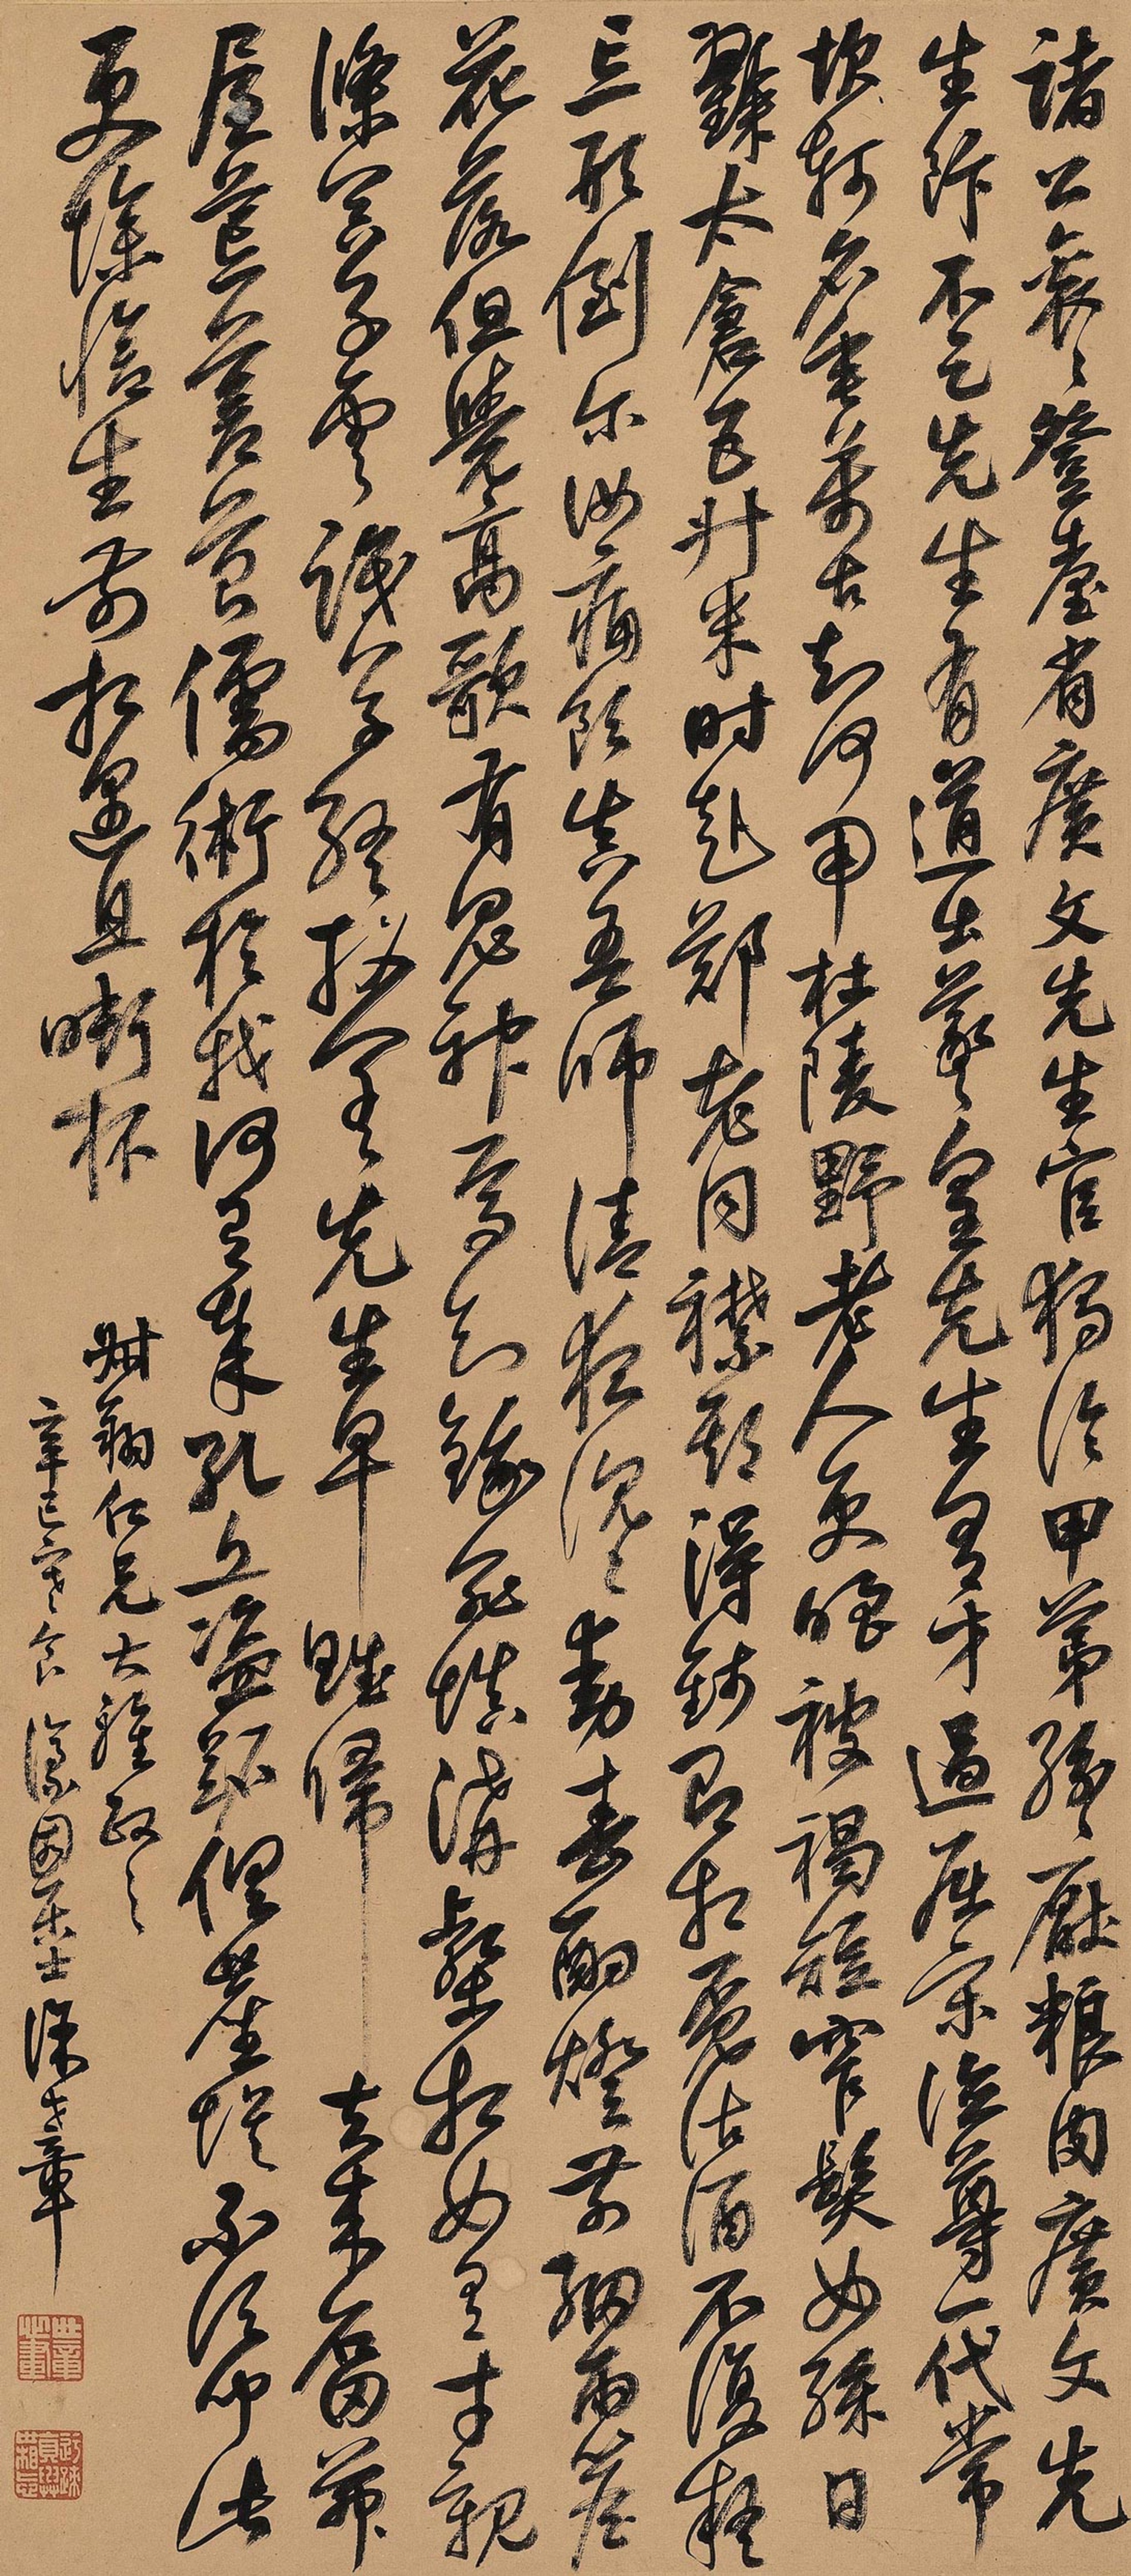 诸公衮〻登台省廣文先生官獨冷甲第紛〻厭粱肉廣文先
生飯不足先生有道出羲皇先生有才過屈宋德尊一代常
坎軻名垂萬古知何用杜陵野老人更嗤被褐短窄鬢如絲日
糴太倉五升米时赴鄭老同襟期得錢即相覓沽酒不復疑
忘形到尔汝痛飲真吾師清夜沉〻動春酌燈前細雨簷
花落但覺高歌有鬼神焉知餓死填溝壑相如逸才親
滌器子雲識字終投閣先生早賦歸去來石田茅
屋荒蒼苔儒術於我何有哉孔丘盜跖俱塵埃不須聞此
更慘愴生前相遇且銜杯
翰仁兄大雅政之
辛巳寒食濠園居士徐世章